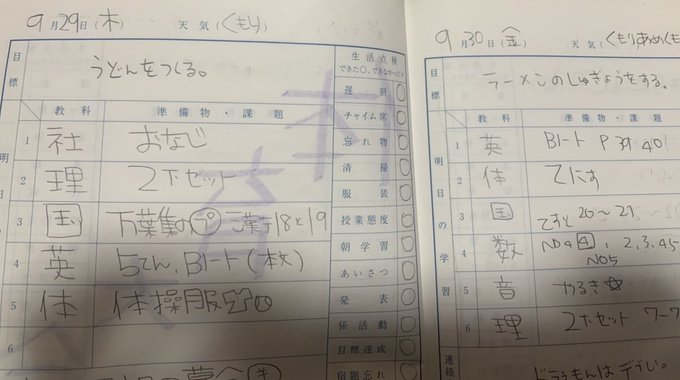 9月29日(木) 天気(くもり)
目標 うどんをつくる。
生活点検
できた○、できなかった×
教科 準備物・課題
1 社 おなじ
2 理 2下セット
3 国 万葉集のプ 漢字18と19
4 英 5てん、Bノート(本文)
5 体 体操服
6
明日の
遅刻 ○
チャイム席 ○
忘れ物 ○
清掃 ○
服装 ○
授業態度 ○
朝学習 ○
あいさつ ○
発表 ○
係活動 ○
目標達成 ○
宿題忘れ
9月30日(金) 天気(くもりあめくも
目標 ラーメンのしゅぎょうをする。
教科 準備物・課題
明日の学習
1 英 Bノート P39 40
2 体 てにす
3 国 20~21
4 数 NO4 4, 2,3,4,5
NO5
5 音 やるき☆
6 理 2下セット ワーク
連絡 ドラえもんはデブい。